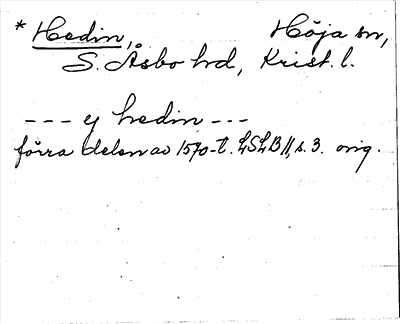 * Hedin, Höja sn,
S. Åsbo hd, Krist. l.
--- y hedin ---
förra delen av 1570-t. LSLB II, s. 3. orig.